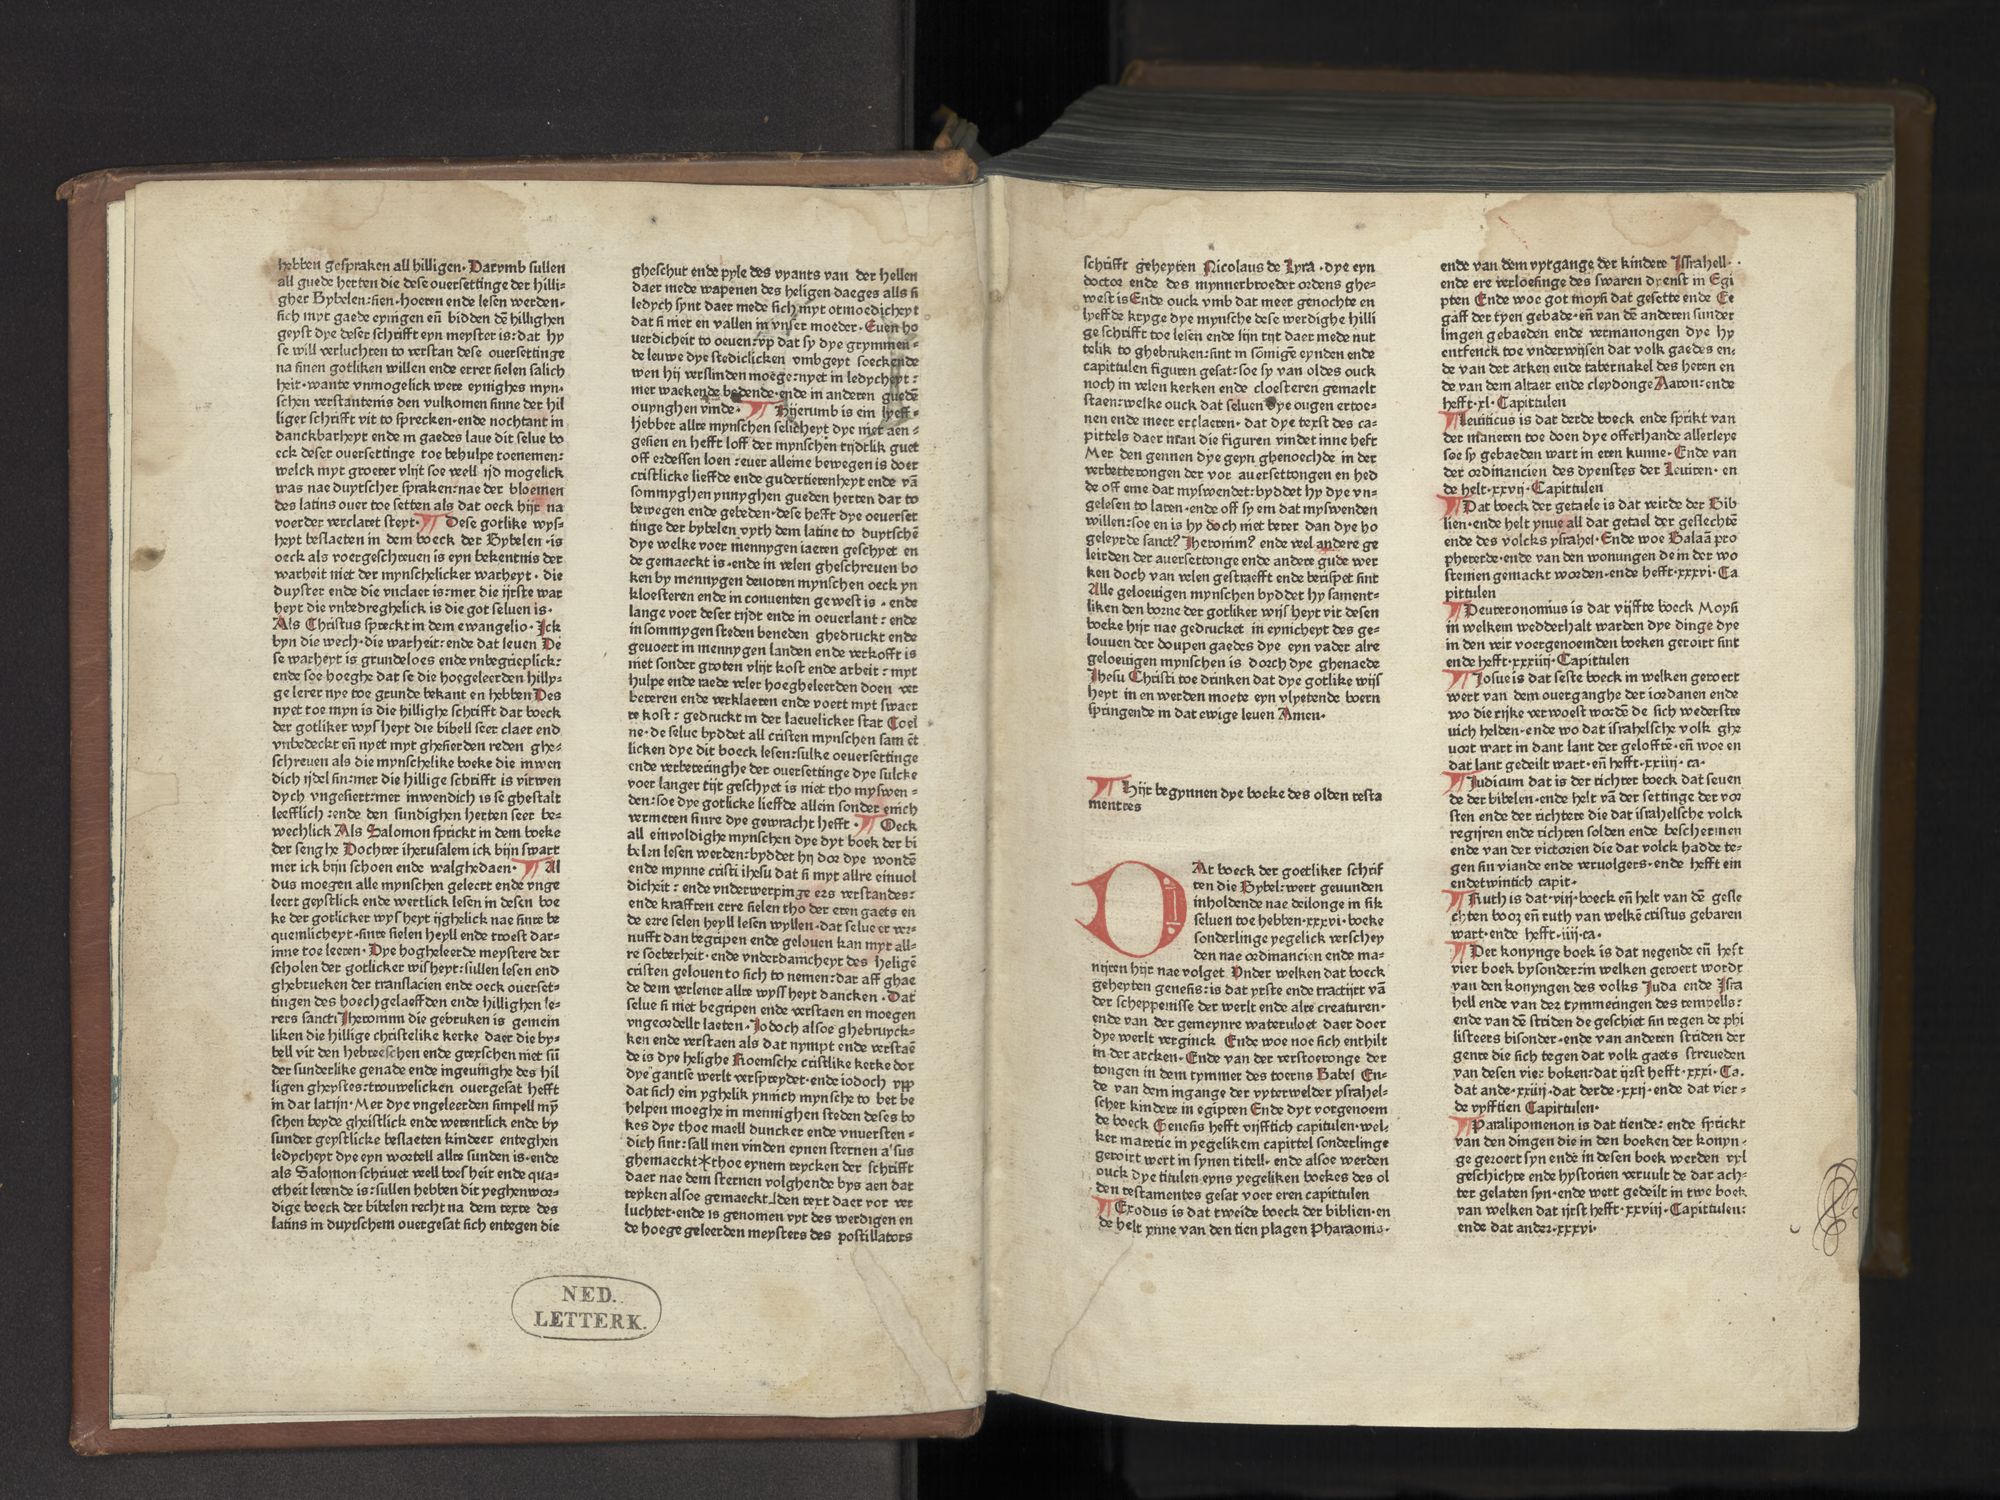 hebben gespraken all hilligen. Darvmb sullen
all guede herten die dese ouersettinge der hilli-
gher Bybelen: sien. hoeren ende lesen werden.
sich myt gaede eynigen en̄ bidden dē hillighen
geyst dye deser schrifft eyn meyster is: dat hy
se will verluchten to verstan dese ouersettinge
na sinen gotliken willen ende errer sielen salich
heit. wante vnmogelick were eynighes myn-
schen verstantenis den vulkomen sinne der hil
liger schrifft vit to sprecken. ende nochtant in
danckbarheyt ende in gaedes laue dit selue bo
eck deser ouersettinge toe behulpe toenemen:
welck myt groeter vlijt soe well ijd mogelick
was nae duytscher spraken: nae der bloemen
des latins ouer toe setten als dat oeck hijr na
voerder verclaret steyt. ¶ Dese gotlike wys-
heyt beslaeten in dem boeck der Bybelen. is
oeck als voergeschreuen is eyn bekentnis der
warheit niet der mynschelicker warheyt. die
duyster ende die vnclaer is: mer die ijrste war
heyt die vnbedreghelick is die got seluen is.
Als Christus spreckt in dem ewangelio. Ick
byn die wech. die warheit: ende dat leuen De
se warheyt is grundeloes ende vnbegrieplick:
ende soe hoeghe dat se die hoegeleerden hilly-
ge lerer nye toe grunde bekant en hebben Des
nyet toe myn is die hillighe schrifft dat boeck
der gotliker wys heyt die bibell seer claer end
vnbedeckt en̄ nyet myt ghesierden reden ghe-
schreuen als die mynschelike boeke die inwen
dich ijdel sin: mer die hillige schrifft is vitwen
dych vngesiert: mer inwendich is se ghestalt
leefflich: ende den sundighen herten seer be-
wechlick Als Salomon sprickt in dem boeke
der senghe Dochter iherusalem ick bijn swart
mer ick bijn schoen ende walghedaen. ¶ Al
dus moegen alle mynschen geleert ende vnge
leert geystlick ende wertlick lesen in desen boe
ke der gotlicker wys heyt ijghelick nae sinre be
quemlicheyt. sinre sielen heyll ende troest dar-
inne toe leeren. Dye hogheleerde meystere der
scholen der gotlicker wisheyt: sullen lesen end
ghebrucken der translacien ende oeck ouerset-
tingen des hoechgelaeffden ende hillighen le-
rers sancti Iheronimi die gebruken is gemein
liken die hillige christelike kerke daer die by-
bell vit den hebreeschen ende grexschen niet sū
der sunderlike genade ende ingeuinghe des hil
ligen gheystes: trouwelicken ouergesat hefft
in dat latijn. Mer dye vngeleerden simpell mȳ
schen beyde gheistlick ende werentlick ende by
sunder geystlicke beslaeten kindeer enteghen
ledycheyt dye eyn wortell allre sunden is. ende
als Salomon schriuet well boes heit ende qua-
etheit lerende is: sullen hebben dit yeghenwor-
dige boeck der bibelen recht na dem texte des
latins in duytschem ouergesat sich entegen die
gheschut ende pyle des vyants van der hellen
daer mede wapenen des heligen daeges alls si
ledych synt daer mede sich myt otmoedicheyt
dat si niet en vallen in vnser moeder. Euen ho
uerdicheit to oeuen: vp dat sy dye grymmen-
de leuwe dye stediclicken vmbgeyt soeckende
wen hij verslinden moege: nyet in ledycheyt:
mer waekende bedende. ende in anderen guedē
ouynghen vinde. ¶ Hijerumb is ein lyeff-
hebber allre mynschen selicheyt dye niet aen-
gesien en hefft loff der mynschen tijdtlik guet
off erdessen loen: euer alleine bewegen is doer
cristlicke lieffde ende gudertierenheyt ende vā
sommyghen ynnyghen gueden herten dar to
bewegen ende gebeden. dese hefft dye oeuerset
tinge der bybelen vyth dem latine to duytschē
dye welke voer mennygen iaeren geschyet en
de gemaeckt is. ende in velen gheschreuen bo
ken by mennygen deuoten mynschen oeck yn
kloesteren ende in conuenten gewest is. ende
lange voer deser tijdt ende in oeuerlant: ende
in sommygen steden beneden ghedruckt ende
geuoert in mennygen landen ende verkofft is
niet sonder groten vlijt kost ende arbeit: myt
hulpe ende raede veler hoegheleerden doen ver
beteren ende verklaeren ende voert myt swaer
re kost: gedruckt in der laeuelicker stat Coel
ne. de selue byddet all cristen mynschen sam ēt
licken dye dit boeck lesen: sulke oeuersettinge
ende verbeteringhe der ouersettinge dye sulcke
voer langer tijt geschyet is niet tho myswen-
den: soe dye gotlicke lieffde allein sonder enich
vermeten sinre dye gewracht hefft. ¶ Oeck
all einvoldighe mynschen dye dyt boek der bi
belen lesen werden: byddet hij dor dye wondē
ende mynne cristi ihesu dat si myt allre einuol
dicheit: ende vnderwerpinge ers verstandes:
ende krafften erre sielen tho der eren gaets en
de erre selen heyll lesen wyllen. dat selue er ver-
nufft dan begripen ende gelouen kan myt all-
re soeberheit. ende vnderdamcheyt des heligē
cristen gelouen to sich to nemen: dar aff ghae
de dem verlener allre wyss heyt dancken. Dat
selue si niet begripen ende verstaen en moegen
vngeordellt laeten. Jodoch alsoe ghebruyck-
ken ende verstaen als dat nympt ende verstaē
de is dye helighe Roemsche cristlike kerke dor
dye gantse werlt verspreydet. ende iodoch vpp
dat sich ein yghelik ynnich mynsche to bet be
helpen moeghe in mennighen steden deses bo
kes dye thoe maell duncker ende vnuersten-
dich sint: sall men vinden eynen sternen alsus
ghemaeckt * thoe eynem teycken der schrifft
daer nae dem sternen volghende bys aen dat
teyken alsoe gemaeckt. [den text daer vor ver
luchtet. ende is genomen vyt des werdigen en
de hoege geleerden meysters des postillators
NED.
LETTERK.
schrifft geheyten Nicolaus de lyra. dye eyn
doctor ende des mynnerbroeder ordens ghe-
west is Ende ouck vmb dat meer genochte en
lyeffde kryge dye mynsche dese werdighe hilli
ge schrifft toe lesen ende sijn tijt daer mede nut
telik to ghebruken: sint in somigē eynden ende
capittulen figuren gesat: soe sy van oldes ouck
noch in velen kerken ende cloesteren gemaelt
staen: welke ouck dat seluen dye ougen ertoe-
nen ende meer erclaeren. dat dye text des ca-
pittels daer man die figuren vindet inne heft
Mer den gennen dye geyn ghenoechde in der
verbetterongen der vor auersettongen en hed
de off eme dat myswendet: byddet hy dye vn-
gelesen to laten. ende off sy em dat myswenden
willen: soe en is hy doch niet beter dan dye ho
geleyrde sanct? Iheronim? ende veel andere ge
leirden der auersettonge ende andere gude wer
ken doch van velen gestraefft ende berispet sint
Alle geloeuigen mynschen byddet hy sament-
liken den borne der gotliker wijs heyt vit desen
boeke hijr nae gedrucket in eynicheyt des ge-
louuen der doupen gaedes dye eyn vader alre
geloeuigen mynschen is dorch dye ghenaede
Ihesu Christi toe drinken dat dye gotlike wijs
heyt in en werden moete eyn vlyetende born
springende in dat ewige leuen Amen.
¶ Hijr begynnen dye boeke des olden testa
mentes
DAt boeck der goetliker schrif
ten die Bybel: wert geuunden
inholdende nae deilonge in sik
seluen toe hebben. xxxvi. boeke
sonderlinge yegelick verschey
den nae ordinancien ende ma-
nijren hijr nae volget Vnder welken dat boeck
geheyten genesis: is dat yrste ende tractijrt vā
der scheppenisse der werlt ende alre creaturen.
ende van der gemeynre wateruloet daer doer
dye werlt verginck Ende woe noe sich enthilt
in der arcken. Ende van der verstoeronge der
tongen in dem tymmer des toerns Babel En-
de van dem ingange der vyterwelder ysrahel-
scher kindere in egipten Ende dyt vorgenoem
de boeck Genesis hefft vijfftich capitulen. wel-
ker materie in yegelikem capittel sonderlinge
geroirt wert in synen titell. ende alsoe werden
ouck dye titulen eyns yegeliken boekes des ol
den testamentes gesat voer eren capittulen
¶ Exodus is dat tweide boeck der biblien. en
de helt ynne van den tien plagen Pharaonis.
ende van dem vytgange der kindere Israhell.
ende ere verloesinge des swaren dyenst in Egi
pten Ende woe got moysi dat gesette ende Ee
gaff der tyen gebade. en̄ van dē anderen sunder
lingen gebaeden ende vermanongen dye hy
entfenck toe vnderwijsen dat volk gaedes en-
de van der arken ende tabernakel des heren en
de van dem altaer ende cleydonge Aaron: ende
hefft. xl. Capittulen
¶ Leuiticus is dat derde boeck ende sprikt van
der maneren toe doen dye offerhande allerleye
soe sy gebaeden wart in eren kunne. Ende van
der ordinancien des dyenstes der Leuiten. en
de helt. xxvij. Capittulen
¶ Dat boeck der getaele is dat virde der Bib
lien. ende helt ynue all dat getael der geslechtē
ende des volcks ysrahel. Ende woe Balaā pro
pheterde. ende van den wonungen de in der wo
stemen gemackt worden. ende hefft. xxxvi. Ca
pittulen
¶ Deuteronomius is dat vijffte boeck Moysi
in welkem wedderhalt warden dye dinge dye
in den veir voergenoemden boeken geroirt sint
ende hefft. xxxiiij. Capittulen
¶ Josue is dat seste boeck in welken geroert
wert van dem ouerganghe der iordanen ende
wo die rijke verwoest wordē de sich wederstre
uich helden. ende wo dat israhelsche volk ghe
uort wart in dant lant der geloffte. en̄ woe en
dat lant gedeilt wart. en̄ hefft. xxiiij. ca.
¶ Judicum dat is der richter boeck dat seuen
de der bibelen. ende helt vā der settinge der vor
sten ende der richtere die dat israhelsche volck
regijren ende richten solden ende beschermen
ende van der victorien die dat volck hadde te-
gen sin viande ende veruolgers. ende hefft ein
endetwintich capit.
¶ Ruth is dat. viij. boeck en̄ helt van dē gesle
chten booz en̄ ruth van welkē cristus gebaren
wart. ende hefft. iiij. ca.
¶ Der konynge boek is dat negende en̄ heft
vier boek bysonder: in welken geroert wordt
van den konyngen des volks Juda ende Isra
hell ende van dez tymmeringen des tempells:
ende van dē striden de geschiet sin tegen de phi
listeers bisonder. ende van anderen striden der
genre die sich tegen dat volk gaets streueden
van desen vier boken: dat ijrst hefft. xxxi. Ca.
dat ande. xxiiij. dat derde. xxij. ende dat vier-
de vyfftien Capittulen.
¶ Paralipomenon is dat tiende: ende sprickt
van den dingen die in den boeken der konyn-
ge geroert syn ende in desen boek werden vyl
geschichte ende hystorien veruult de dar ach-
ter gelaten syn. ende wert gedeilt in twe boek
van welken dat ijrst hefft. xxviij. Capittulen:
ende dat ander. xxxvi.